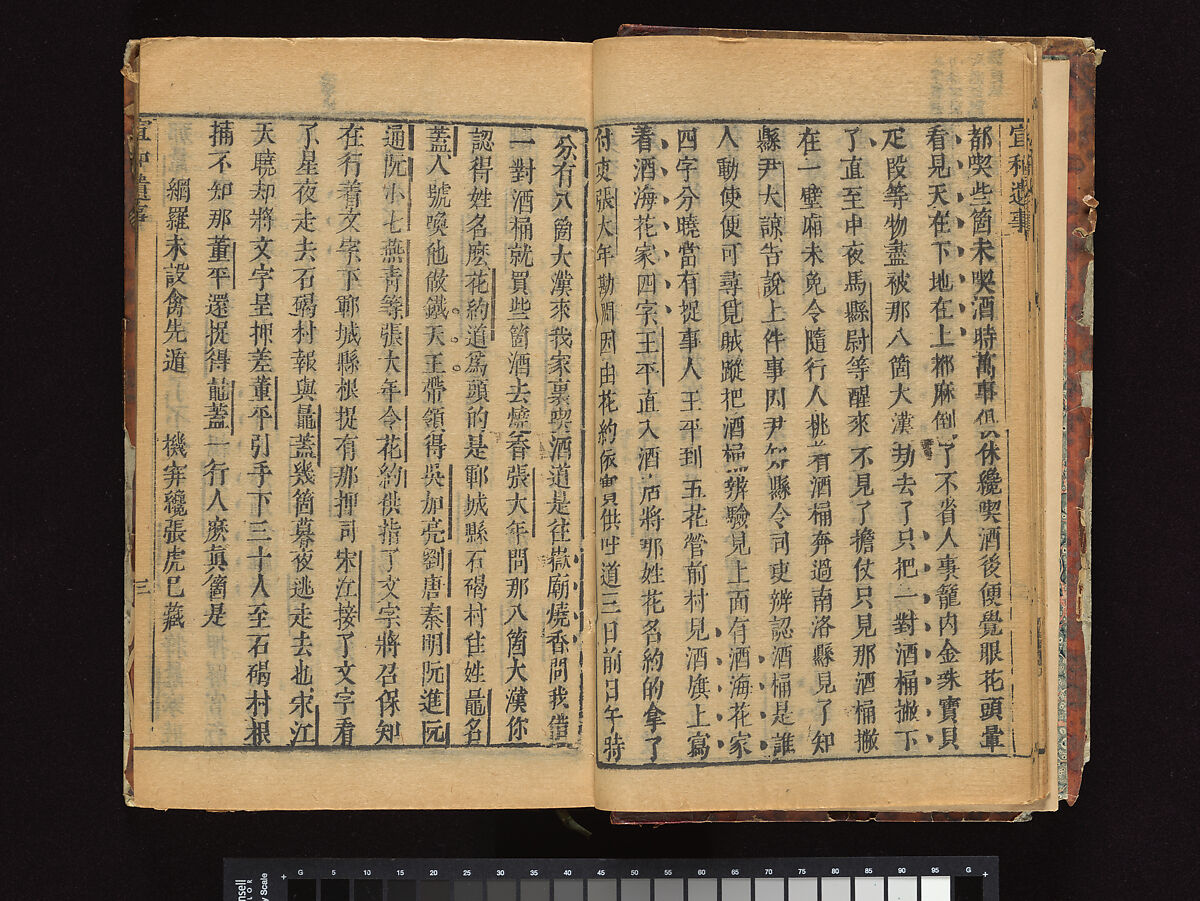 宣和遺事
都喫些箇未喫酒時萬事俱休纔喫酒後便覺眼花頭暈
看見天在下地在上都麻倒了不省人事籠內金珠寶貝
疋段等物盡被那八箇大漢劫去了只把一對酒桶撇下
了直至中夜馬縣尉等醒來不見了擔仗只見那酒桶撇
在一壁廂未免令隨行人挑着酒桶奔過南洛縣見了知
縣尹大諒告說上件事因尹知縣令司吏辨認酒桶是誰
人動使便可尋覓賊蹤把酒桶辨驗見上面有酒海花家
四字分曉當有捉事人王平到五花營前村見酒旗上寫
着酒海花家四字王平直入酒店將那姓花名約的拿了
付吏張大年勘問因由花約依實供吐道三日前日午時
分有八箇大漢來我家裏喫酒道是往嶽廟燒香問我借
一對酒桶就買些箇酒去燒香張大年問那八箇大漢你
認得姓名麽花約道爲頭的是鄆城縣石碣村住姓鼂名
蓋人號喚他做鐵天王帶領得吳加亮劉唐秦明阮進阮
通阮小七燕青等張大年令花約供指了文字將召保知
在行着文字下鄆城縣根捉有那押司宋江接了文字看
了星夜走去石碣村報與鼂蓋幾箇暮夜逃走去也宋江
天曉却將文字呈押差董平引手下三十人至石碣村根
捕不知那董平還捉得鼂蓋一行人麽真箇是
網羅未設禽先遁 機穽纔張虎已藏
宣和遺事
三
G 5 10 15 20 25 30 35 40 45 50 55 60 65 70 75 80 85 90 95 G